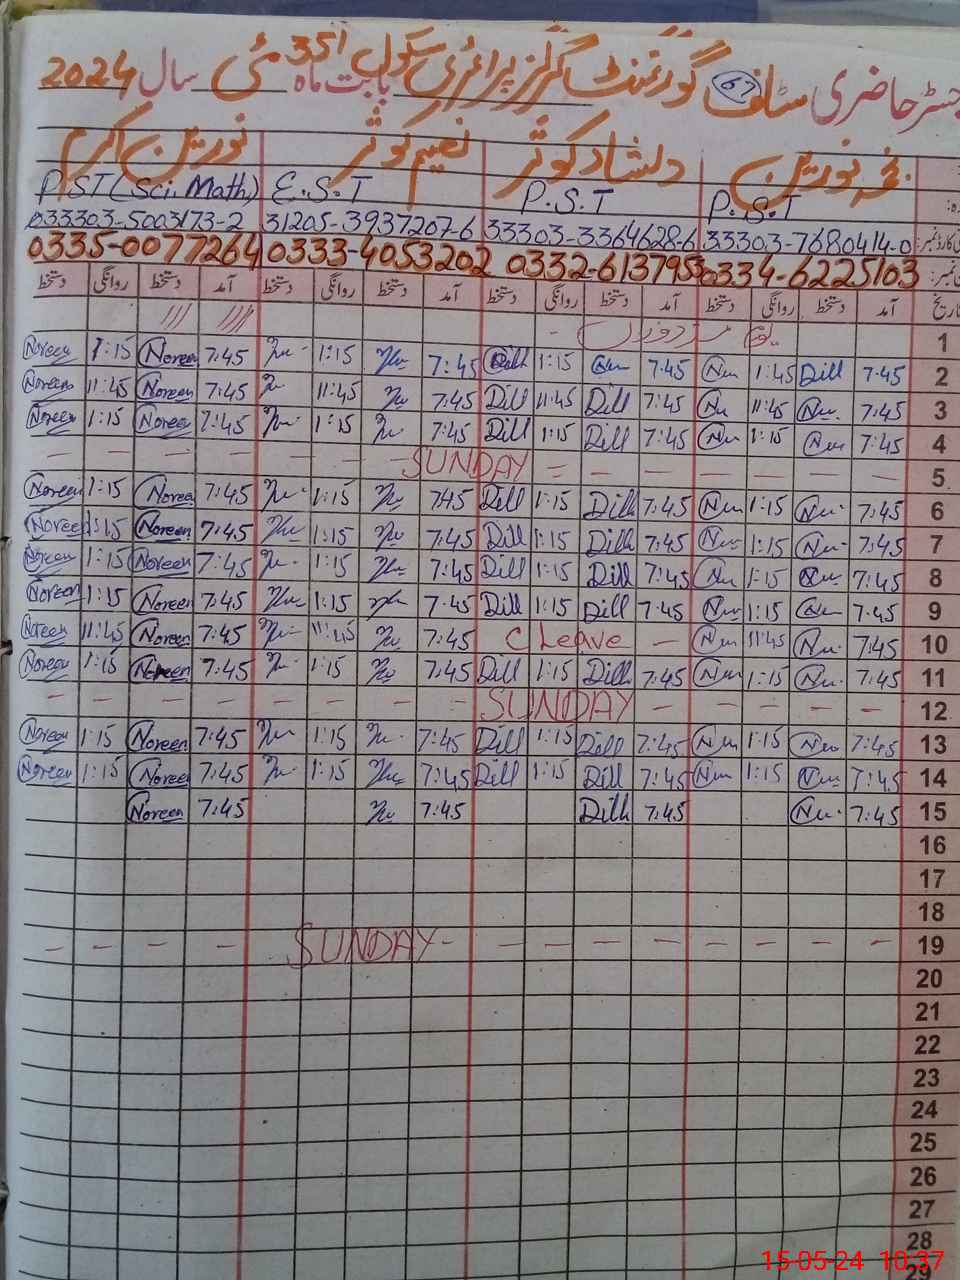 رجسٹر حاضری سٹاف گورنمنٹ گرلز پرائمری سکول 351 بابت ماہ مئی سال 2024
67
نورین نسیم کوثر دلشاد کوثر نورین اکرم
P.S.T P.S.T E.S.T PST (Sci. Math)
33303-7680414-0 33303-3364628-6 31205-3937207-6 033303-5003173-2
0334-6225103 0332-613795 0333-4053202 0335-0077264
تاریخ آمد دستخط روانگی دستخط آمد دستخط روانگی دستخط آمد دستخط روانگی دستخط آمد دستخط روانگی دستخط
1 یوم مزدوراں
2 7.45 Dill 1:45 Nu 7.45 Nu 1:15 Dill 7:45 1:15 7:45 Noreen 1:15 Noreen
3 7:45 Nu 11:45 Nu 7:45 Dill 11:45 Dill 7:45 11:45 7:45 Noreen 11:45 Noreen
4 7:45 Nu 1:15 Nu 7:45 Dill 1:15 Dill 7:45 1:15 7:45 Noreen 1:15 Noreen
5 SUNDAY
6 7:45 Nu 1:15 Nu 7:45 Dill 1:15 Dill 7:45 1:15 7:45 Noreen 1:15 Noreen
7 7:45 Nu 1:15 Nu 7:45 Dill 1:15 Dill 7:45 1:15 7:45 Noreen 1:15 Noreen
8 7:45 Nu 1:15 Nu 7:45 Dill 1:15 Dill 7:45 1:15 7:45 Noreen 1:15 Noreen
9 7:45 Nu 1:15 Nu 7:45 Dill 1:15 Dill 7:45 1:15 7:45 Noreen 1:15 Noreen
10 7:45 Nu 11:45 Nu C Leave 7:45 11:45 7:45 Noreen 11:45 Noreen
11 7:45 Nu 1:15 Nu 7:45 Dill 1:15 Dill 7:45 1:15 7:45 Noreen 1:15 Noreen
12 SUNDAY
13 7:45 Nu 1:15 Nu 7:45 Dill 1:15 Dill 7:45 1:15 7:45 Noreen 1:15 Noreen
14 7:45 Nu 1:15 Nu 7:45 Dill 1:15 Dill 7:45 1:15 7:45 Noreen 1:15 Noreen
15 7:45 Nu 7:45 Dill 7:45 7:45 Noreen
16
17
18
19 SUNDAY
20
21
22
23
24
25
26
27
28
29
15-05-24 10:37